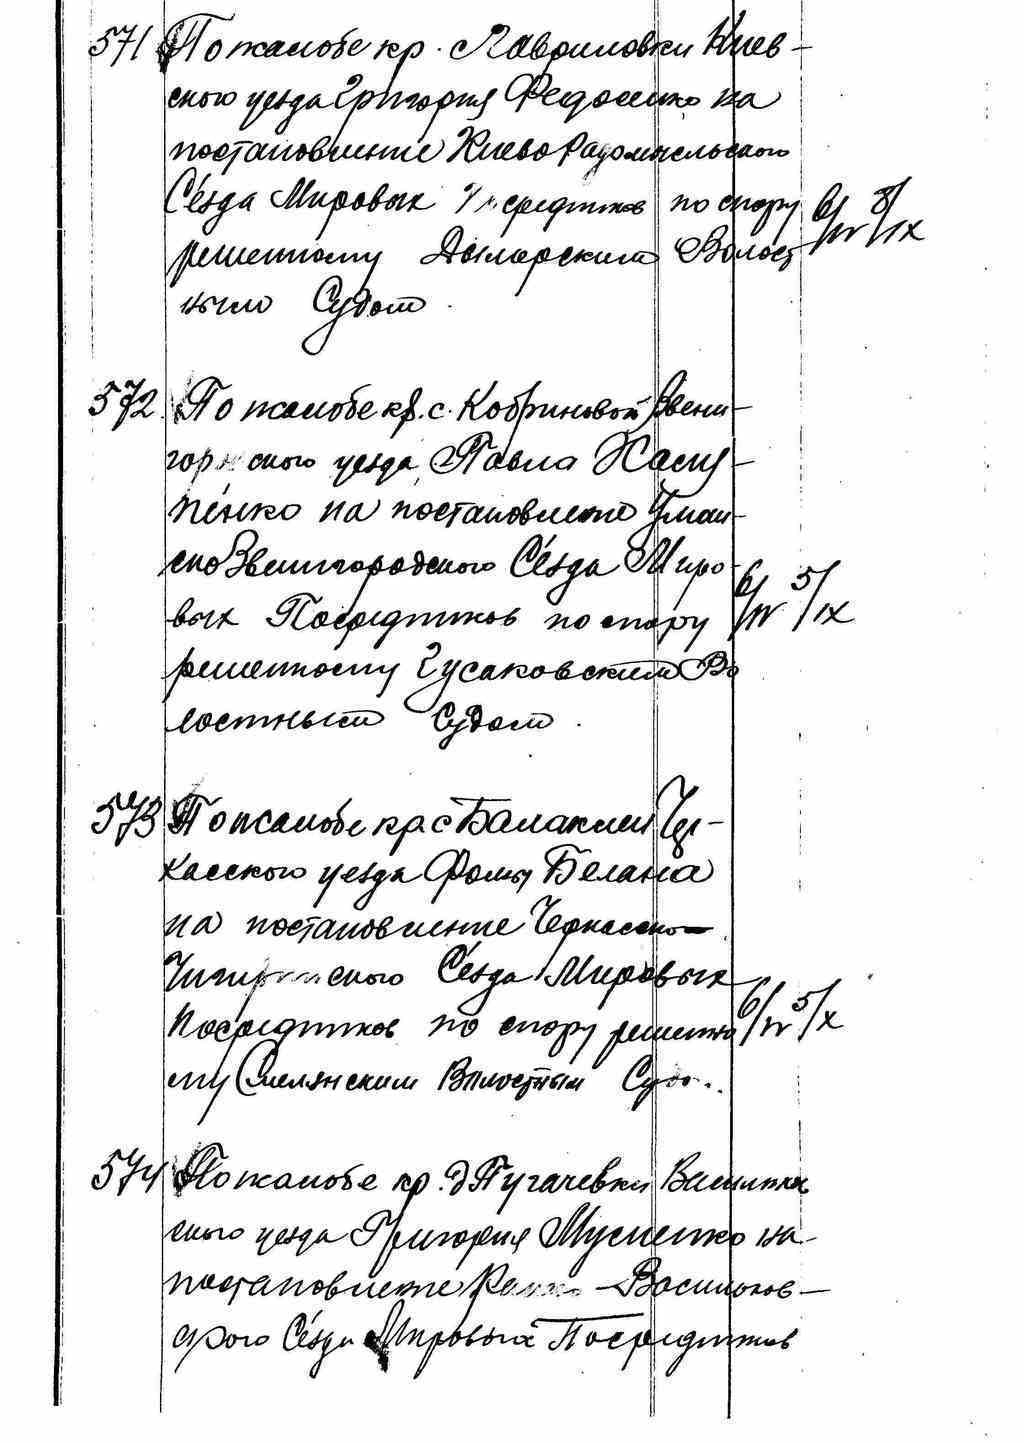 571 По жалобе кр. с Гавриловки Киев-
ского уезда Григория Федосенко на
постановление Киево Радомысльского
Сьезда Мировых Посредников по спору 6/IV 8/IX
решенному Дымерским Волост
ным Судом.
572 По жалобе кр. с. Кобриновой Звени-
горьского уезда Павла
на постановление Уман-
ско Звенигородского Сьезда Миро-
вых Посредников по спору 6/IV 5/IX
решенному Гусаковским Во
лостным Судом.
573 По жалобе кр с Балаклеи Чер-
касского уезда Фомы Белана
на постановление Черкасско-
Чигиринского Сьезда Мировых
Посредников по спору решенно 6/IV 5/X
му Смелянским Волостным Судо..
574 По жалобе кр. д Пугачевки Васильков
ского уезда Григория Мусиенко на-
постановление - Васильков-
ского Сьезда Мировых Посредников